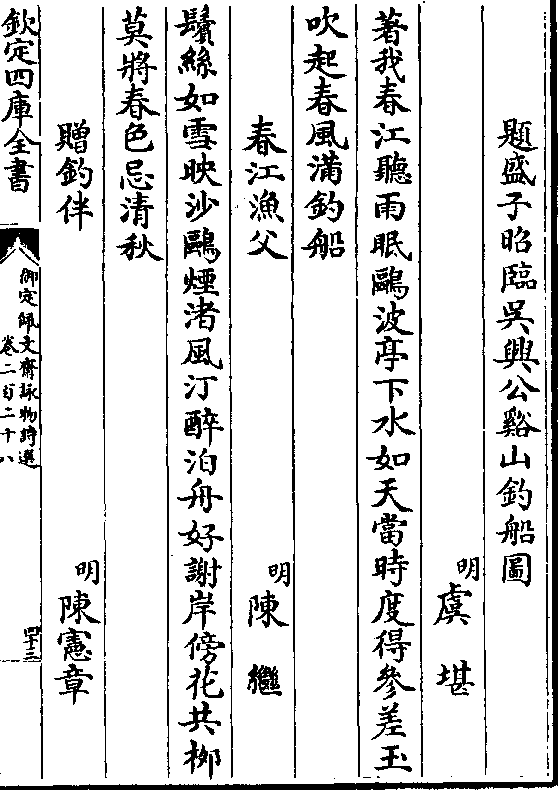 題盛子昭臨吳興公谿山釣船圖
明虞堪
著我春江聽雨眠鷗波亭下水如天當時度得參差玉
吹起春風滿釣船
春江漁父
明陳繼
鬚絲如雪映沙鷗煙渚風汀醉泊舟好謝岸傍花共栁
莫將春色忌清秋
贈釣伴
明陳憲章
欽定四庫全書
御定佩文齋詠物詩選
卷二百二十八
四十三